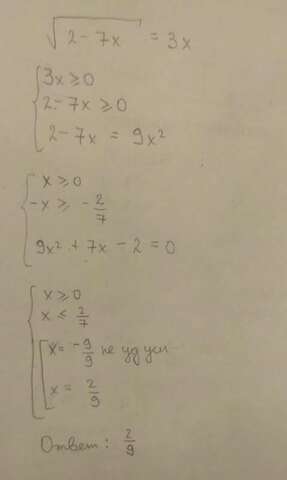 √(2 - 7x) = 3x
{ 3x ≥ 0
2 - 7x ≥ 0
2 - 7x = 9x²
{ x ≥ 0
-x ≥ -2/7
9x² + 7x - 2 = 0
{ x ≥ 0
x ≤ 2/7
[ x = -9/9 не уд усл
x = 2/9
Ответ: 2/9